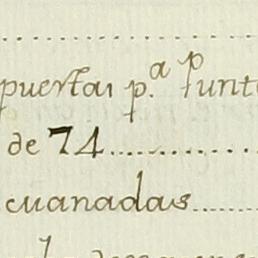 puertas p.ª Punt
de 74
cuanadas